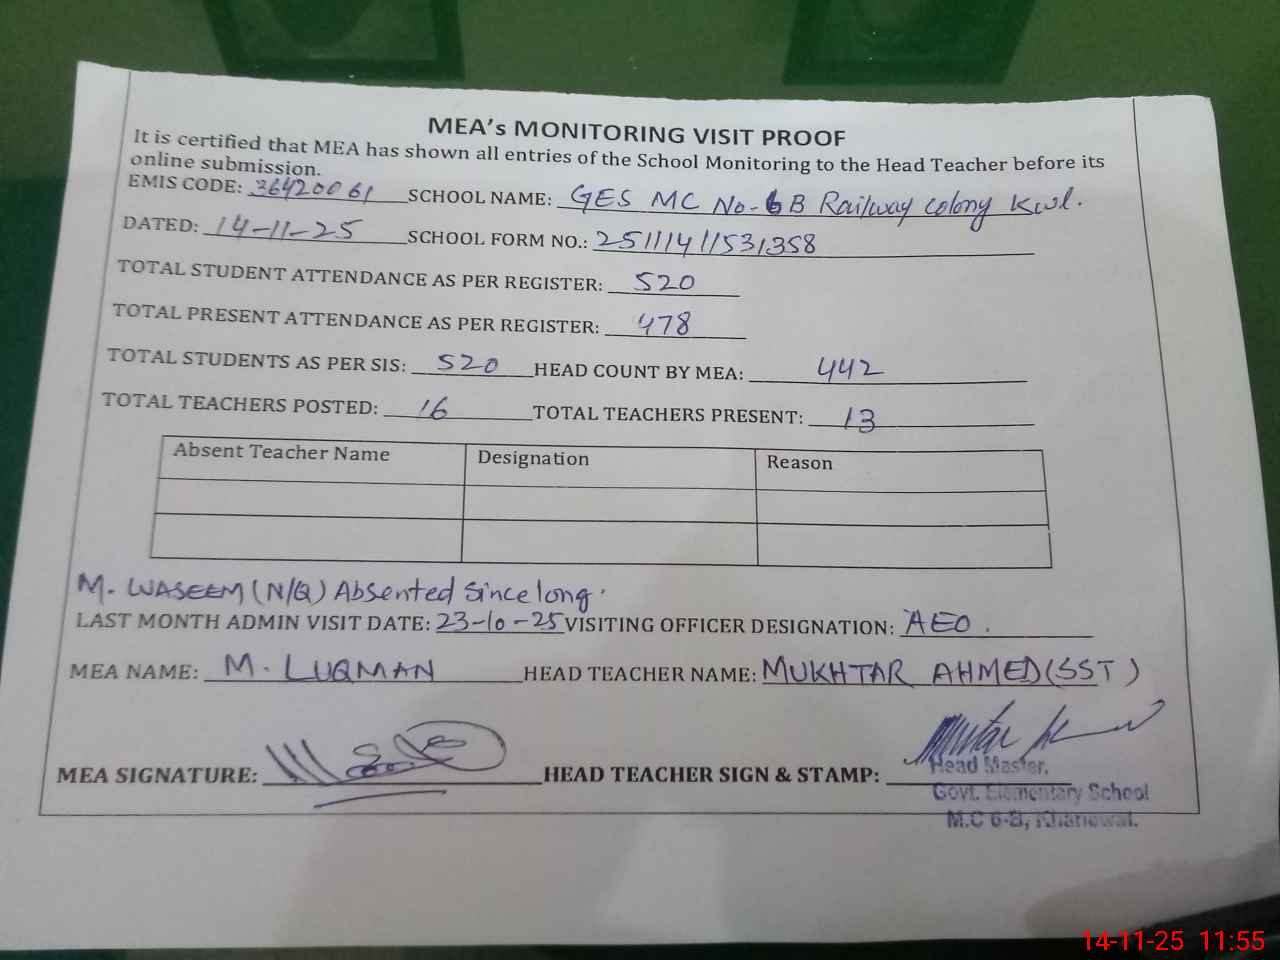 MEA's MONITORING VISIT PROOF
It is certified that MEA has shown all entries of the School Monitoring to the Head Teacher before its
online submission.
EMIS CODE: 36420061 SCHOOL NAME: GES MC No-6B Railway colony Kwl.
DATED: 14-11-25 SCHOOL FORM NO.: 25111411531358
TOTAL STUDENT ATTENDANCE AS PER REGISTER: 520
TOTAL PRESENT ATTENDANCE AS PER REGISTER: 478
TOTAL STUDENTS AS PER SIS: 520 HEAD COUNT BY MEA: 442
TOTAL TEACHERS POSTED: 16 TOTAL TEACHERS PRESENT: 13
Absent Teacher Name Designation Reason
M. WASEEM (N/Q) Absented Since long.
LAST MONTH ADMIN VISIT DATE: 23-10-25 VISITING OFFICER DESIGNATION: AEO.
MEA NAME: M. LUQMAN HEAD TEACHER NAME: MUKHTAR AHMED (SST)
MEA SIGNATURE: HEAD TEACHER SIGN & STAMP:
Head Master,
Govt. Elementary School
M.C 6-B, Khanewal.
14-11-25 11:55